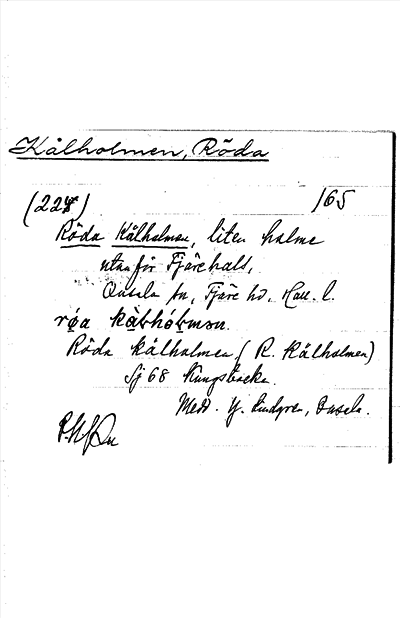 Kålholmen, Röda
(224) 165
Röda Kålholmen, liten holme
utanför Fjärehals,
Onsala sn, Fjäre hd, Hall. l.
Röda kålholmen (R. Kålholmen)
Sj 68 Kungsbacka.
Medd. Y. Lindgren, Onsala.